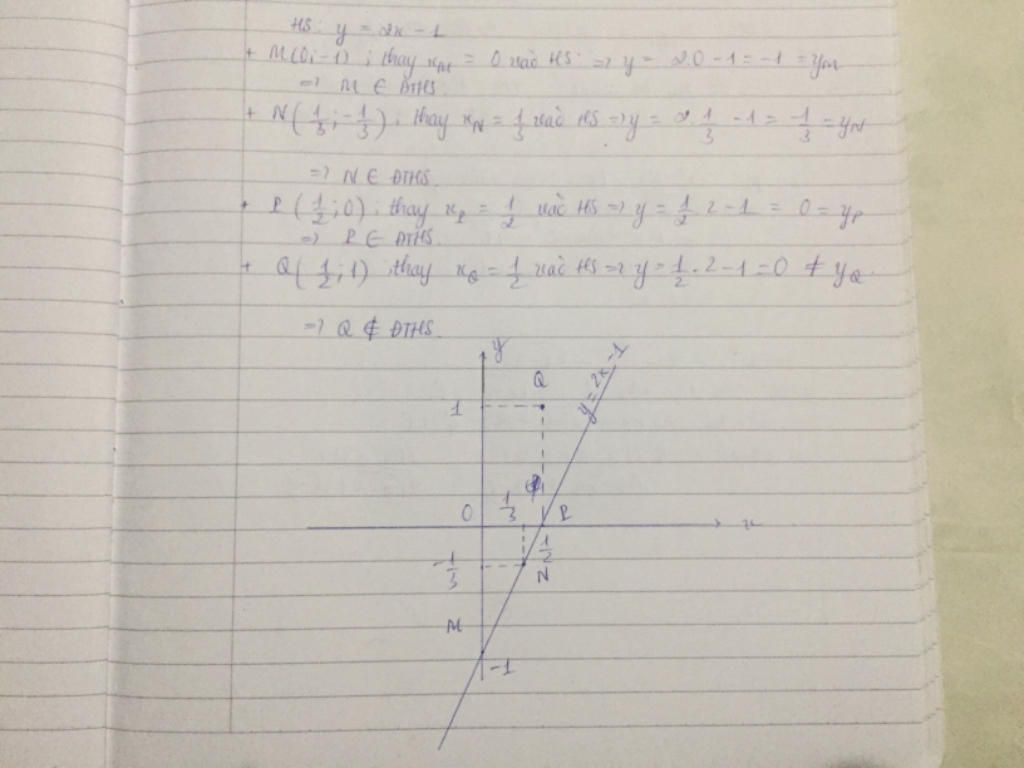 HS: y = 2x - 1
+ M(0; -1) ; thay x_M = 0 vào HS: => y = 2.0 - 1 = -1 = y_M
=> M ∈ ĐTHS.
+ N(1/3; -1/3) ; thay x_N = 1/3 vào HS => y = 2.1/3 - 1 = -1/3 = y_N
=> N ∈ ĐTHS.
+ P(1/2; 0) ; thay x_P = 1/2 vào HS => y = 1/2 . 2 - 1 = 0 = y_P
=> P ∈ ĐTHS.
+ Q(1/2; 1) ; thay x_Q = 1/2 vào HS => y = 1/2 . 2 - 1 = 0 ≠ y_Q.
=> Q ∉ ĐTHS.
y
y = 2x - 1
Q
1
O 1/3 P x
1/2
-1/3 N
M
-1